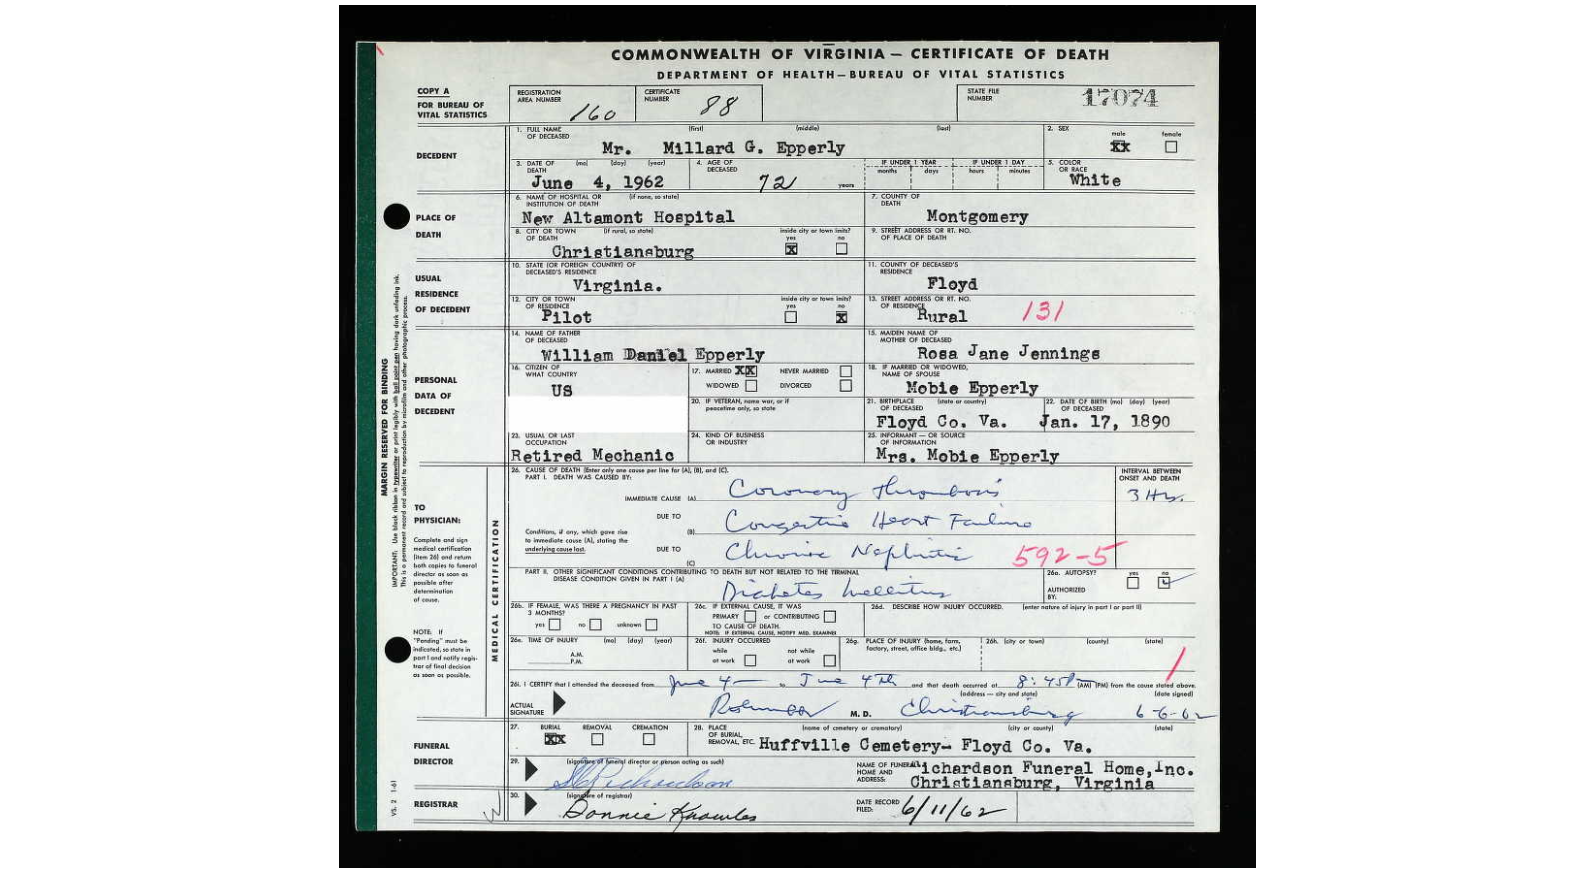 COMMONWEALTH OF VIRGINIA — CERTIFICATE OF DEATH
DEPARTMENT OF HEALTH—BUREAU OF VITAL STATISTICS
COPY A
FOR BUREAU OF
VITAL STATISTICS
REGISTRATION
AREA NUMBER 160
CERTIFICATE
NUMBER 88
STATE FILE
NUMBER 17074
DECEDENT
1. FULL NAME
OF DECEASED (first) (middle) (last)
Mr. Millard G. Epperly
2. SEX male XX female
3. DATE OF (mo) (day) (year)
DEATH
June 4, 1962
4. AGE OF
DECEASED
72 years
IF UNDER 1 YEAR IF UNDER 1 DAY
months days hours minutes
5. COLOR
OR RACE
White
PLACE OF
DEATH
6. NAME OF HOSPITAL OR (if none, so state)
INSTITUTION OF DEATH
New Altamont Hospital
7. COUNTY OF
DEATH
Montgomery
8. CITY OR TOWN (if rural, so state)
OF DEATH
Christiansburg
inside city or town limits?
yes X no
9. STREET ADDRESS OR RT. NO.
OF PLACE OF DEATH
USUAL
RESIDENCE
OF DECEDENT
10. STATE (OR FOREIGN COUNTRY) OF
DECEASED'S RESIDENCE
Virginia.
11. COUNTY OF DECEASED'S
RESIDENCE
Floyd
12. CITY OR TOWN
OF RESIDENCE
Pilot
inside city or town limits?
yes no X
13. STREET ADDRESS OR RT. NO.
OF RESIDENCE
Rural 131
PERSONAL
DATA OF
DECEDENT
14. NAME OF FATHER
OF DECEASED
William Daniel Epperly
15. MAIDEN NAME OF
MOTHER OF DECEASED
Rosa Jane Jennings
16. CITIZEN OF
WHAT COUNTRY
US
17. MARRIED XX NEVER MARRIED
WIDOWED DIVORCED
18. IF MARRIED OR WIDOWED,
NAME OF SPOUSE
Mobie Epperly
20. IF VETERAN, name war, or if
peacetime only, so state
21. BIRTHPLACE (state or country)
OF DECEASED
Floyd Co. Va.
22. DATE OF BIRTH (mo) (day) (year)
OF DECEASED
Jan. 17, 1890
23. USUAL OR LAST
OCCUPATION
Retired Mechanic
24. KIND OF BUSINESS
OR INDUSTRY
25. INFORMANT — OR SOURCE
OF INFORMATION
Mrs. Mobie Epperly
MARGIN RESERVED FOR BINDING
IMPORTANT: Use black ribbon in typewriter or print legibly with ball point pen having dark unfading ink.
This is a permanent record and subject to reproduction by microfilm and other photographic process.
VS. 2 1-61
TO
PHYSICIAN:
Complete and sign
medical certification
(Item 26) and return
both copies to funeral
director as soon as
possible after
determination
of cause.
NOTE: If
"Pending" must be
indicated, so state in
part I and notify regis-
trar of final decision
as soon as possible.
MEDICAL CERTIFICATION
26. CAUSE OF DEATH (Enter only one cause per line for (A), (B), and (C).
PART I. DEATH WAS CAUSED BY:
INTERVAL BETWEEN
ONSET AND DEATH
IMMEDIATE CAUSE (A) Coronary Thrombosis 3 Hrs.
DUE TO (B) Congestive Heart Failure
Conditions, if any, which gave rise
to immediate cause (A), stating the
underlying cause last.
DUE TO (C) Chronic Nephritis 592-5
PART II. OTHER SIGNIFICANT CONDITIONS CONTRIBUTING TO DEATH BUT NOT RELATED TO THE TERMINAL
DISEASE CONDITION GIVEN IN PART I (A)
Diabetes Mellitus
26a. AUTOPSY? yes no
AUTHORIZED
BY:
26b. IF FEMALE, WAS THERE A PREGNANCY IN PAST
3 MONTHS?
yes no unknown
26c. IF EXTERNAL CAUSE, IT WAS
PRIMARY or CONTRIBUTING
TO CAUSE OF DEATH.
NOTE: IF EXTERNAL CAUSE, NOTIFY MED. EXAMINER
26d. DESCRIBE HOW INJURY OCCURRED. (enter nature of injury in part I or part II)
26e. TIME OF INJURY (mo) (day) (year)
A.M.
P.M.
26f. INJURY OCCURRED
while not while
at work at work
26g. PLACE OF INJURY (home, farm,
factory, street, office bldg., etc.)
26h. (city or town) (county) (state)
26i. I CERTIFY that I attended the deceased from June 4 to June 4th and that death occurred at 8:45P (AM) (PM) from the cause stated above.
ACTUAL
SIGNATURE M. D.
(address — city and state) (date signed)
Christiansburg 6-6-62
FUNERAL
DIRECTOR
27. BURIAL XX REMOVAL CREMATION
28. PLACE
OF BURIAL,
REMOVAL, ETC. (name of cemetery or crematory) (city or county) (state)
Huffville Cemetery- Floyd Co. Va.
29. (signature of funeral director or person acting as such)
Richardson
NAME OF FUNERAL
HOME AND
ADDRESS:
Richardson Funeral Home,Inc.
Christiansburg, Virginia
REGISTRAR
30. (signature of registrar)
Bonnie Knowles
DATE RECORD
FILED: 6/11/62